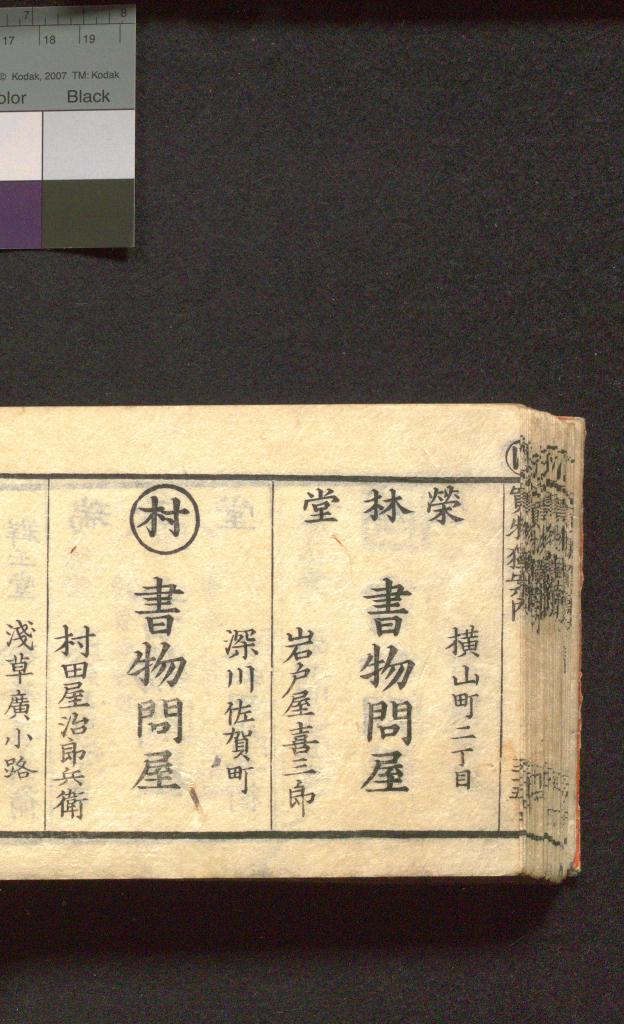 7 8
17 18 19
© Kodak, 2007 TM: Kodak
olor Black
榮林堂
横山町二丁目
書物問屋
岩戸屋喜三郎
村
深川佐賀町
書物問屋
村田屋治郎兵衛
淺草廣小路